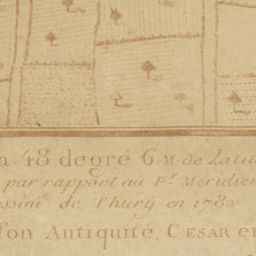 48 degré 6 M. de Latit
par rapport au Pr. Meridie
de Thury en 178
son Antiquité, CESAR e